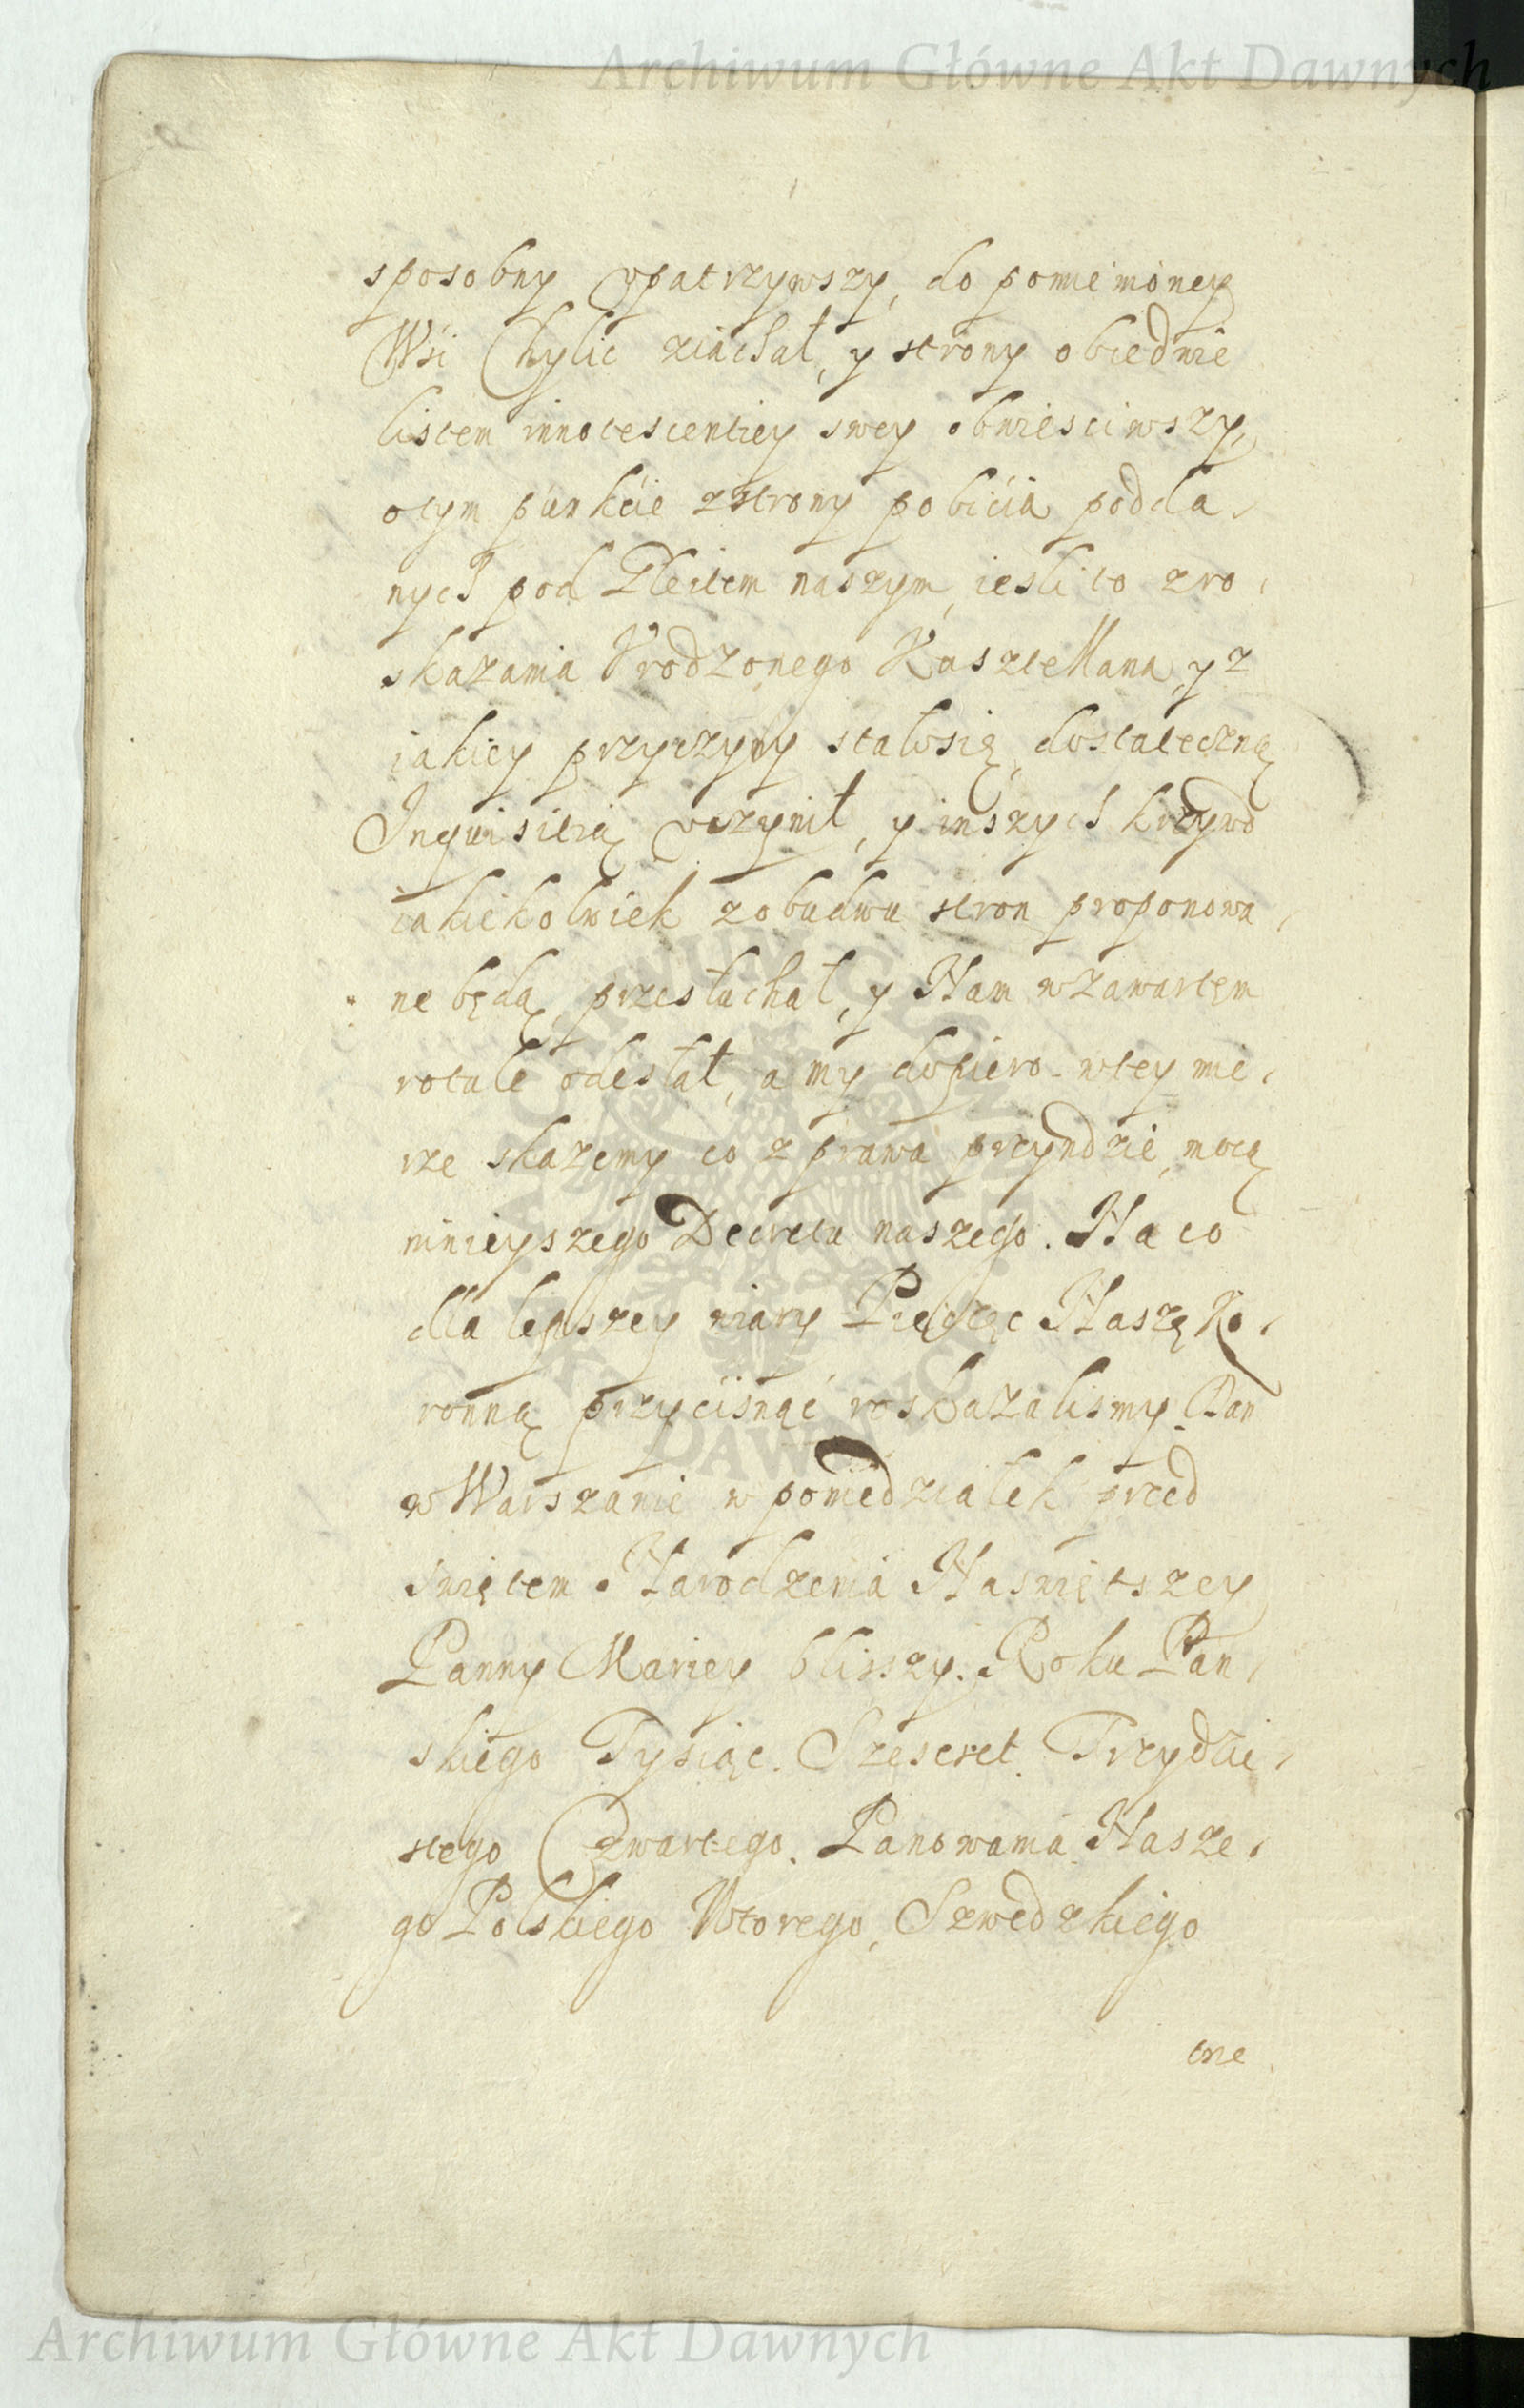 Archiwum Główne Akt Dawnych
sposobny vpatrzywszy, do pomienioney
Wśi Chylic ziachał, y strony obiedwie
listem innotescentiey swey obwiesciwszy,
otym punkcie zstrony pobicia podda,
nych pod Gleitem naszym, iesli to zro,
skazania Vrodzonego Kasztellana, y z
iakiey przyczyny stałosię, dostateczną
Inquisitią vczynił, y inszych krzywd
iakiekolwiek zobudwu stron proponowa,
ne będą przesłuchał, y Nam wzawartem
rotule odesłał, a my dopiero wtey mie,
rze skażemy co z prawa przyndzie, mocą
ninieyszego Decretu naszego. Na co
dla lepszey wiary Pieczęć Naszę Ko,
ronną przycisnąć roskazalismy. Dan
w Warszawie w poniedziałek przed
świętem Narodzenia Naświętszey
Panny Mariey bliższy. Roku Pan,
skiego Tysiąc. Szescset. Trzydzie,
stego Czwartego. Panowania Nasze,
go Polskiego Wtorego, Szwedzkiego
Archiwum Główne Akt Dawnych